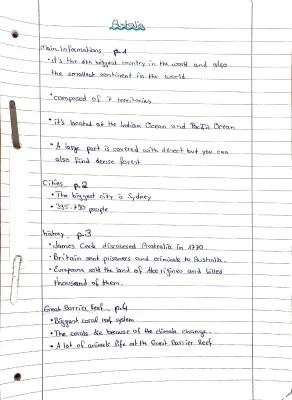 Australia
Main informations p.1
• it's the 6th biggest country in the world and also
the smallest continent in the world
• composed of 7 territories
• it's located at the Indian Ocean and Pacific Ocean
• A large part is covered with desert but you can
also find dense forest
Cities p.2
• The biggest city is Sydney
• 395-790 people
history p.3
• James Cook discovered Australia in 1770.
• Britain sent prisoners and criminals to Australia.
• Europeans sold the land of Aborigines and killed
thousand of them.
Great Barrier Reef p.4
• Biggest coral reef system
• The corals die because of the climate change.
• A lot of animals life at the Great Barrier Reef.